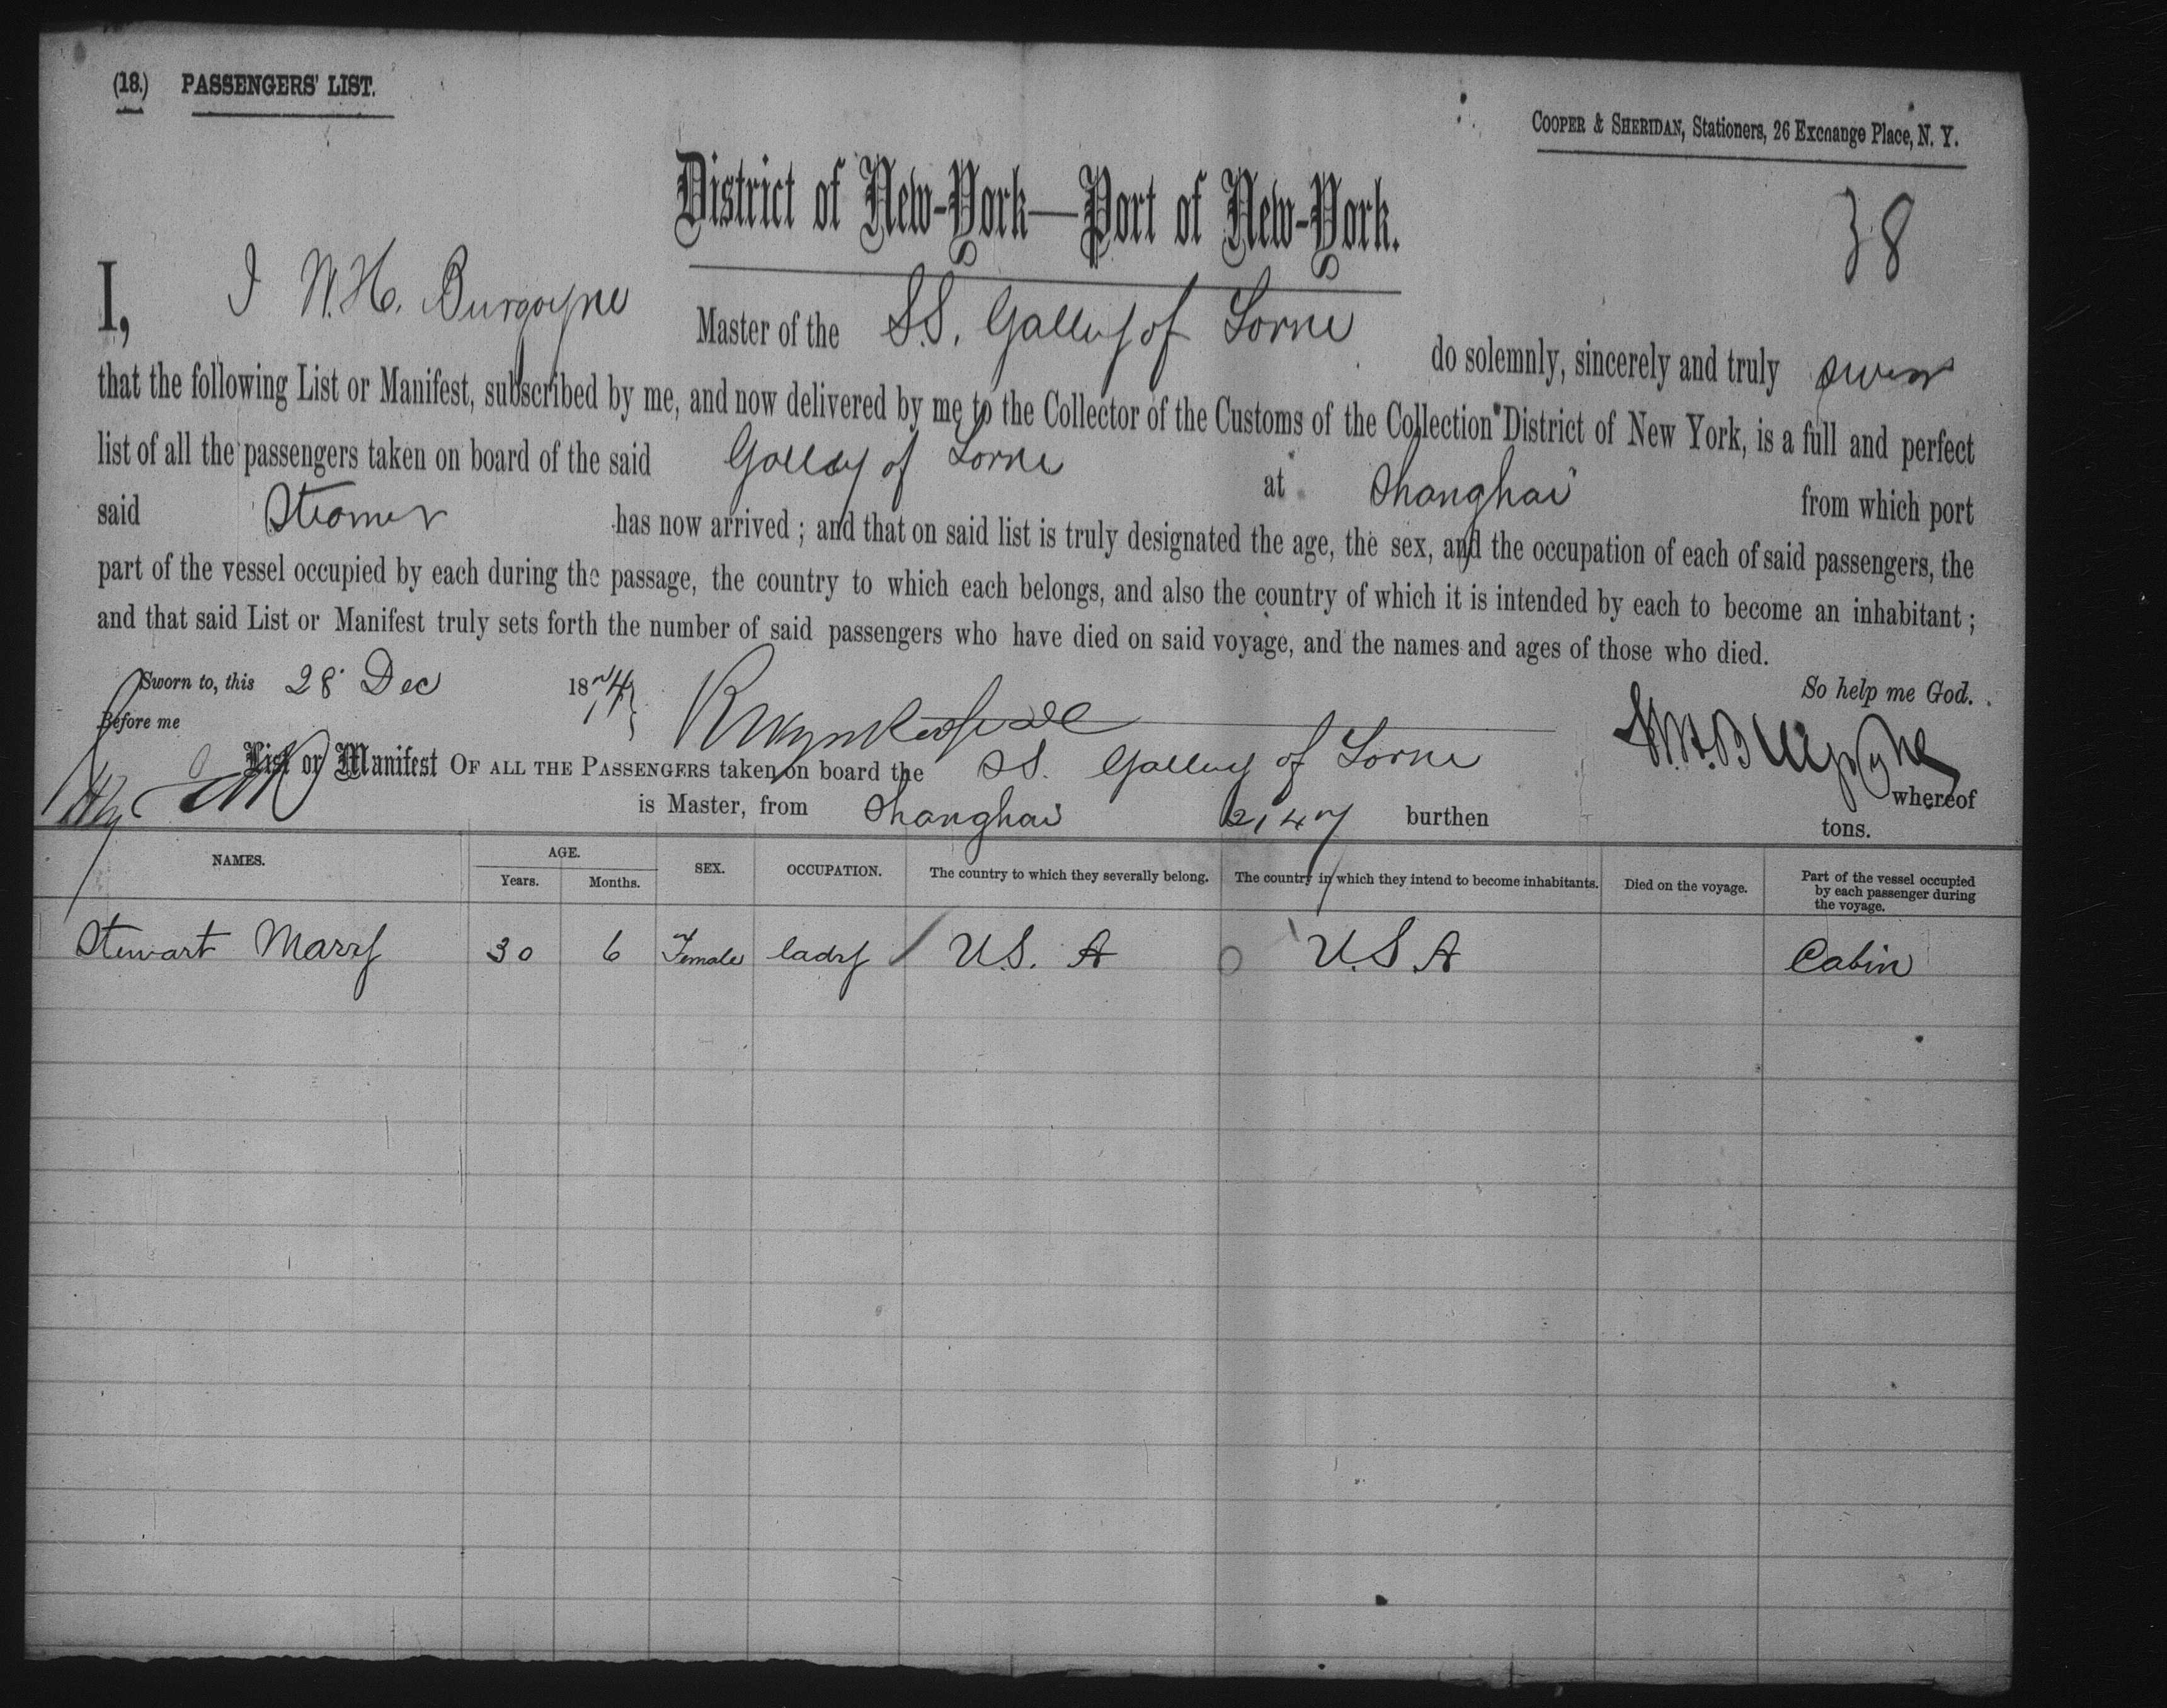 (18.) PASSENGERS' LIST.
COOPER & SHERIDAN, Stationers, 26 Exchange Place, N. Y.
38
District of New-York—Port of New-York.
I, I W.H. Burgoyne Master of the S.S. Galley of Lorne do solemnly, sincerely and truly swear
that the following List or Manifest, subscribed by me, and now delivered by me to the Collector of the Customs of the Collection District of New York, is a full and perfect
list of all the passengers taken on board of the said Galley of Lorne at Shanghai from which port
said Steamer has now arrived ; and that on said list is truly designated the age, the sex, and the occupation of each of said passengers, the
part of the vessel occupied by each during the passage, the country to which each belongs, and also the country of which it is intended by each to become an inhabitant ;
and that said List or Manifest truly sets forth the number of said passengers who have died on said voyage, and the names and ages of those who died.
Sworn to, this 28 Dec 1874 So help me God.
Before me W.H. Burgoyne
List or Manifest OF ALL THE PASSENGERS taken on board the SS. Galley of Lorne whereof
is Master, from Shanghai 2147 burthen tons.
NAMES. AGE. Years. Months. SEX. OCCUPATION. The country to which they severally belong. The country in which they intend to become inhabitants. Died on the voyage. Part of the vessel occupied by each passenger during the voyage.
Stewart Mary 30 6 Female lady U.S. A U.S.A Cabin